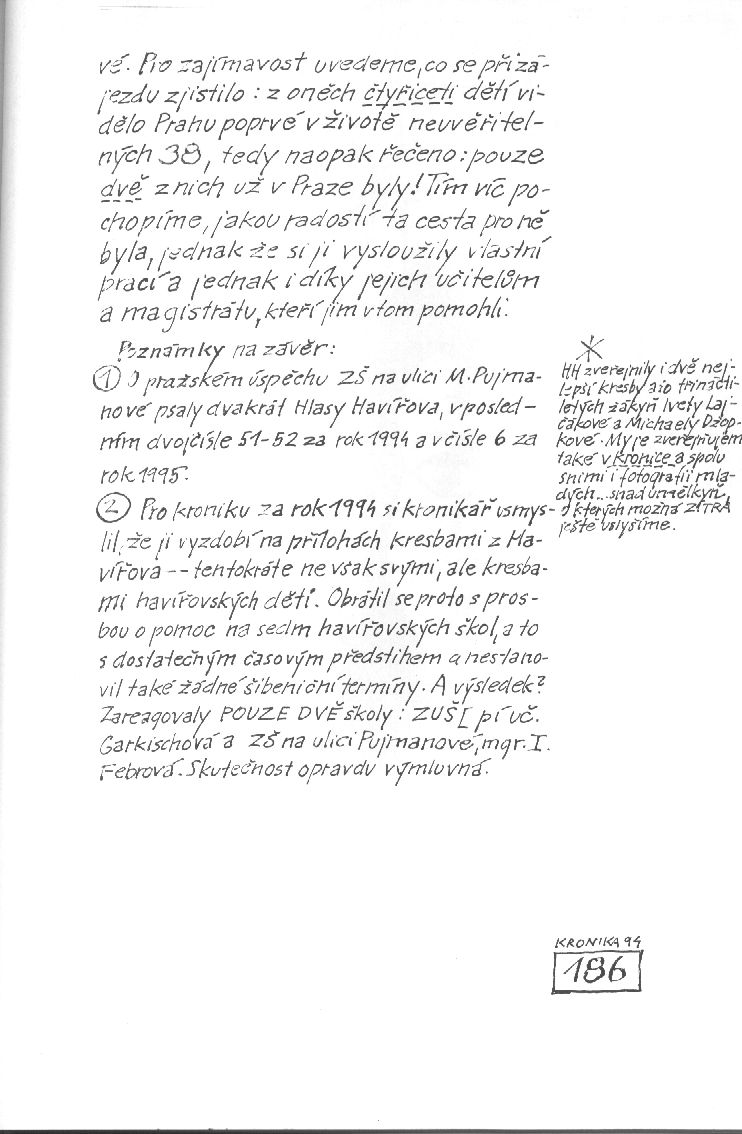 vé. Pro zajímavost uvedeme, co se při zá-
jezdu zjistilo: z oněch čtyřiceti dětí vi-
dělo Prahu poprvé v životě neuvěřitel-
ných 38, tedy naopak řečeno: pouze
dvě z nich už v Praze byly! Tím víc po-
chopíme, jakou radostí ta cesta pro ně
byla, jednak že si ji vysloužily vlastní
prací a jednak i díky jejich učitelům
a magistrátu, kteří jim v tom pomohli.
Poznámky na závěr:
① O pražském úspěchu ZŠ na ulici M. Pujma-
nové psaly dvakrát Hlasy Havířova, v posled-
ním dvojčísle 51-52 za rok 1994 a v čísle 6 za
rok 1995.
② Pro kroniku za rok 1994 si kronikář usmys-
lil, že ji vyzdobí na přílohách kresbami z Ha-
vířova -- tentokráte ne však svými, ale kresba-
mi havířovských dětí. Obrátil se proto s pros-
bou o pomoc na sedm havířovských škol, a to
s dostatečným časovým předstihem a nestano-
vil také žádné šibeniční termíny. A výsledek?
Zareagovaly POUZE DVĚ školy: ZUŠ [pí uč.
Garkischová a ZŠ na ulici Pujmanové, mgr. I.
Febrová. Skutečnost opravdu výmluvná.
*
HH zveřejnily i dvě nej-
lepší kresby a to třinácti-
letých žákyň Ivety Laj-
čákové a Michaely Dzop-
kové. My je zveřejňujem
také v kronice a spolu
s nimi i fotografii mla-
dých... snad umělkyň,
o kterých možná ZÍTRA
ještě uslyšíme.
KRONIKA 94
186